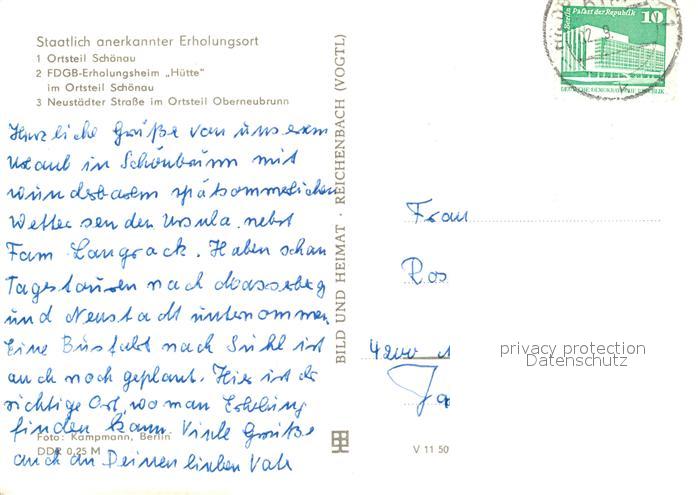 Staatlich anerkannter Erholungsort
1 Ortsteil Schönau
2 FDGB-Erholungsheim „Hütte"
im Ortsteil Schönau
3 Neustädter Straße im Ortsteil Oberneubrunn
Herzliche Grüße von unserem
Urlaub in Schönbrunn mit
wunderbarem spätsommerlichen
Wetter senden Ursula nebst
Fam Langrock. Haben schon
Tagestouren nach Masserberg
und Neustadt unternommen.
Eine Busfahrt nach Suhl ist
auch noch geplant. Hier ist der
richtige Ort, wo man Erholung
finden kann. Viele Grüße
auch an Deinen lieben Vati
Foto: Kampmann, Berlin
DDR 0,25 M
BILD UND HEIMAT · REICHENBACH (VOGTL)
V 11 50
Berlin Palast der Republik
10
DEUTSCHE DEMOKRATISCHE REPUBLIK
Frau
Ros
privacy protection
Datenschutz